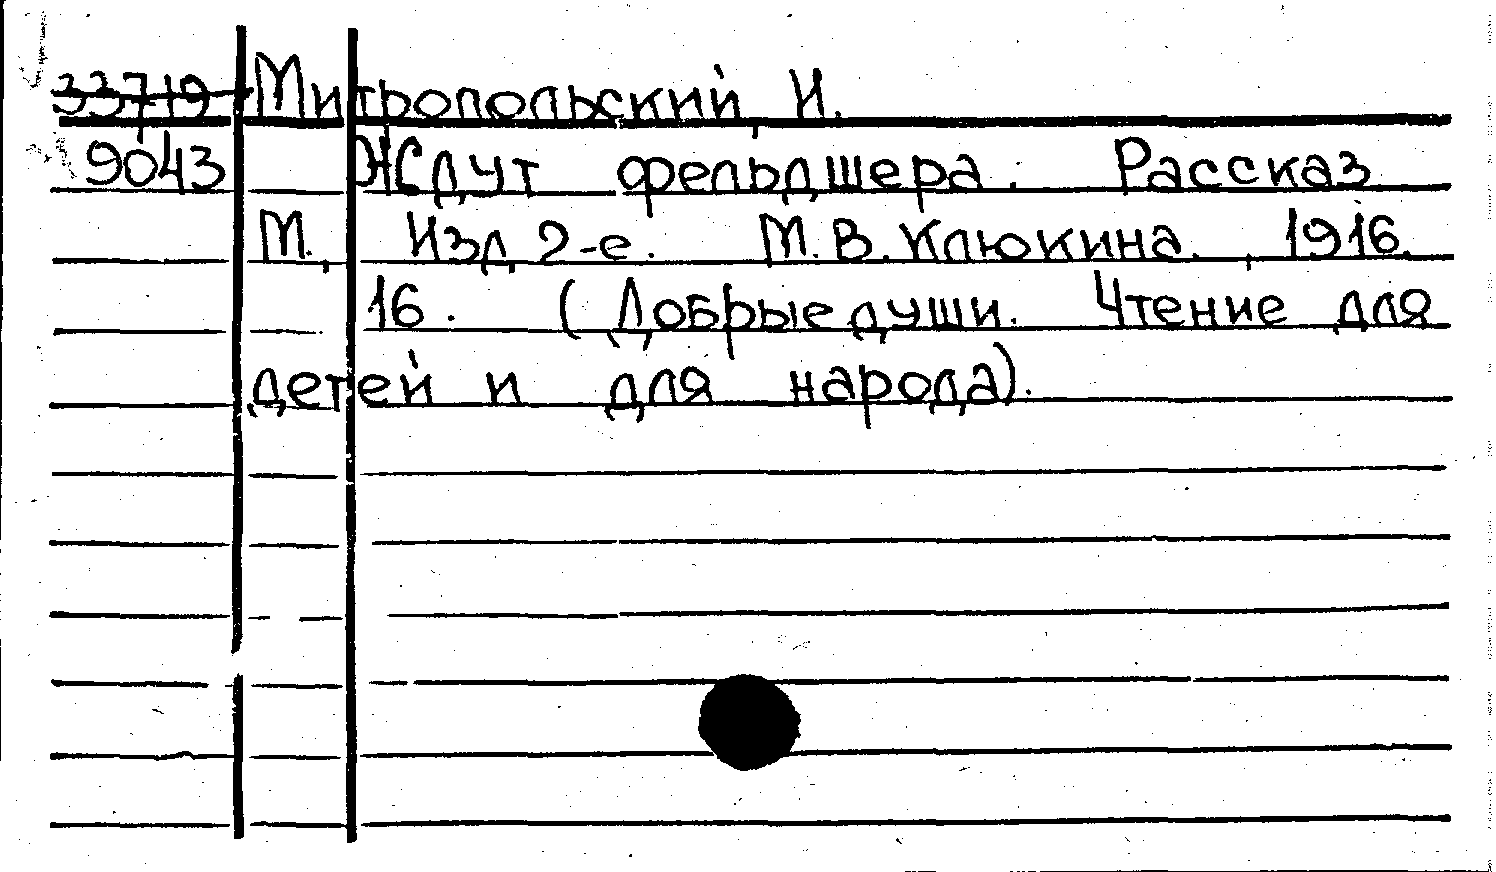 33719 Митропольский, И.
9043 Ждут фельдшера. Рассказ
М., Изд. 2-е. М.В.Клюкина., 1916.
16. (Добрые души. Чтение для
детей и для народа).